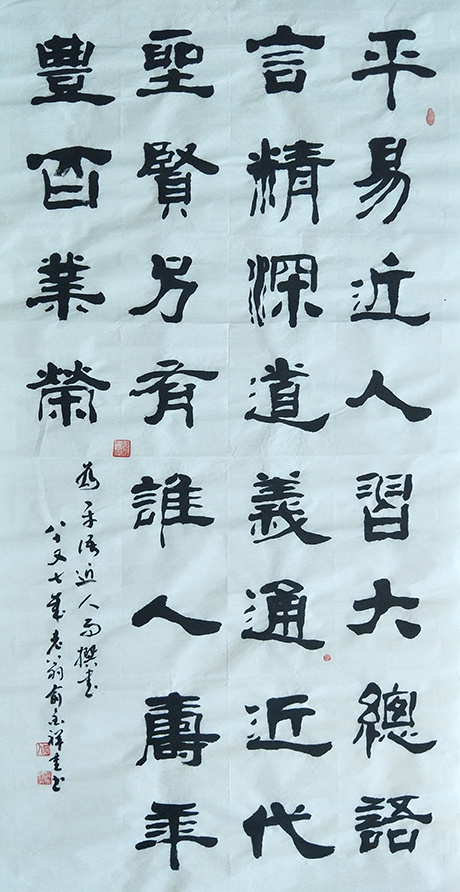 平易近人習大總語
言精深道義通近代
聖賢另有誰人壽年
豐百業榮
為平語近人而撰書
八十又七歲老翁俞祥書